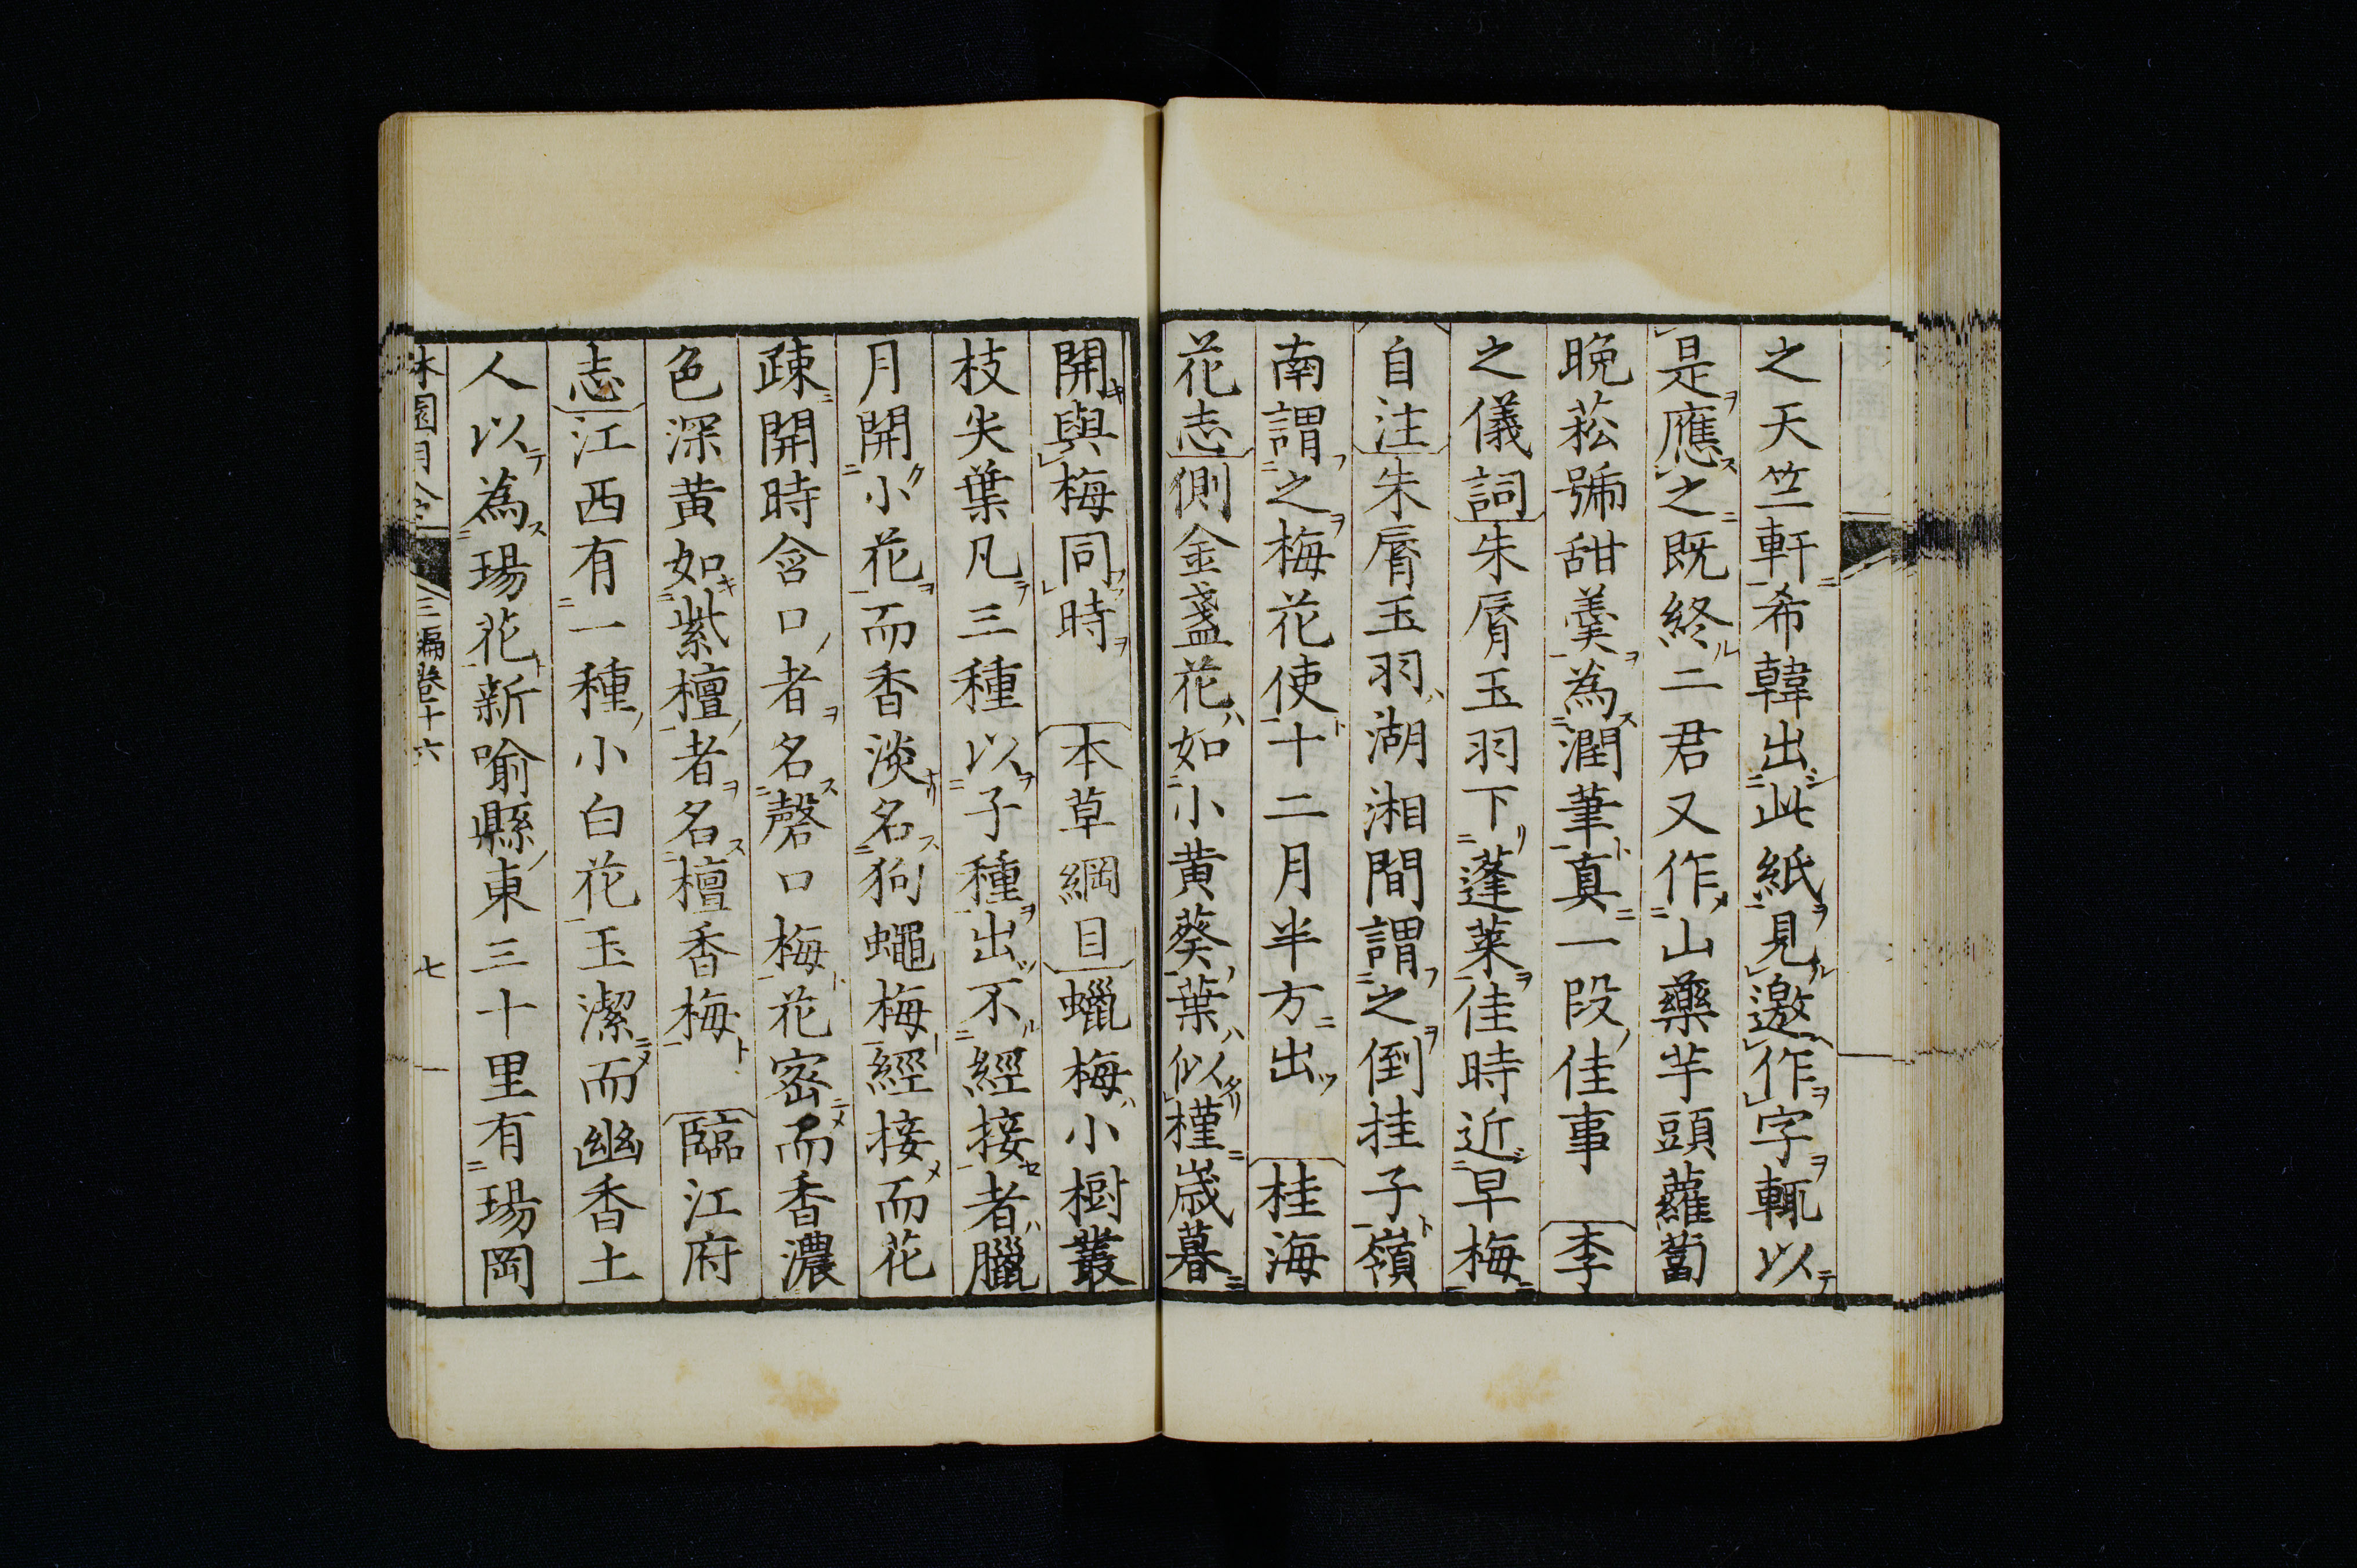 之天竺軒希韓出此紙見邀作字輒以
是應之既終二君又作山藥芋頭蘿蔔
晚菘號甜羹為潤筆真一段佳事　李
之儀詞朱脣玉羽下蓬萊佳時近早梅
自注朱脣玉羽湖湘間謂之倒挂子嶺
南謂之梅花使十二月半方出　桂海
花志側金盞花如小黃葵葉似槿歲暮
開與梅同時　本草綱目蠟梅小樹叢
枝尖葉凡三種以子種出不經接者臘
月開小花而香淡名狗蠅梅經接而花
疎開時含口者名磬口梅花密而香濃
色深黃如紫檀者名檀香梅　臨江府
志江西有一種小白花玉潔而幽香土
人以為瑒花新喻縣東三十里有瑒岡
林園月令　三編卷十六　七